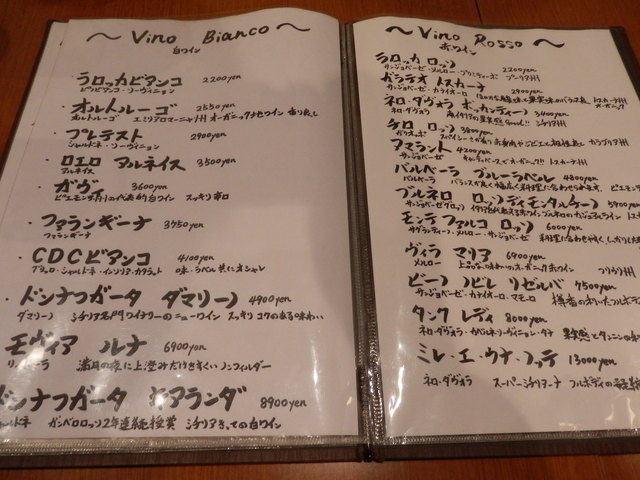 ～ Vino Bianco ～
白ワイン
ラロッカビアンコ 2200yen
ピノビアンコ・ソーヴィニョン
オルトルーゴ 2550yen
オルトルーゴ エミリアロマーニャ州 オーガニックナセワイン 香り良し
プレテスト 2900yen
シャルドネ・ソーヴィニョン
ロエロ アルネイス 3500yen
アルネイス
ガヴィ 3600yen
ピエモンテ州の代表的白ワイン スッキリ辛口
ファランギーナ 3750yen
ファランギーナ
CDCビアンコ 4100yen
シャルドネ・インソリア・カタラット 味・ラベル共にオシャレ
ドンナフガータ ダマリーノ 4900yen
ダマリーノ シチリア名門ワイナリーのニューワイン スッキリコクのある味わい
モヴィア ルナ 6900yen
満月の夜に上澄みだけをすくいノンフィルダー
ドンナフガータ キアランダ 8900yen
シャルドネ ガンベロロッソ2年連続受賞 シチリアきっての白ワイン
～ Vino Rosso ～
赤ワイン
ラロッカ ロッソ 2200yen
サンジョベーゼ・メルロー・プリミティーボ プーリア州
ガラテオ トスカーナ 2900yen
サンジョベーゼ・カナイオーロ トスカーナ州
ネロ・ダヴォラ オッカンティーノ 3400yen
ネロ・ダヴォラ シチリア州
チロ ロッソ 3800yen
ガリオッポ カラブリア州
アマラント 4200yen
サンジョベーゼ トスカーナ州
バルベーラ ブルーラベル 4800yen
バルベーラ バランスが良く幅広く料理に合わせられます。
ブルネロ ロッソ ディモンタルチーノ 5900yen
サンジョベーゼグロッソ
モンテ ファルコ ロッソ 6000yen
サグランティーノ・メルロー・サンジョベーゼ 料理に合わせやすく、しっかり
ヴィラ マリア 6900yen
メルロー 上品な味わいのオーガニック赤ワイン フリウリ州
ビーノ ノビレ リゼルバ 7500yen
サンジョベーゼ・カナイオーロ・マモーロ 樽香のきいたフルボデ
タンク レディ 8000yen
ネロ・ダヴォラ・カベルネソーヴィニョン・タナ 果実感とタンニンの
ミレ・エ・ウナ・ノッテ 13000yen
ネロ・ダヴォラ スーパーシチリアーナ フルボディの最